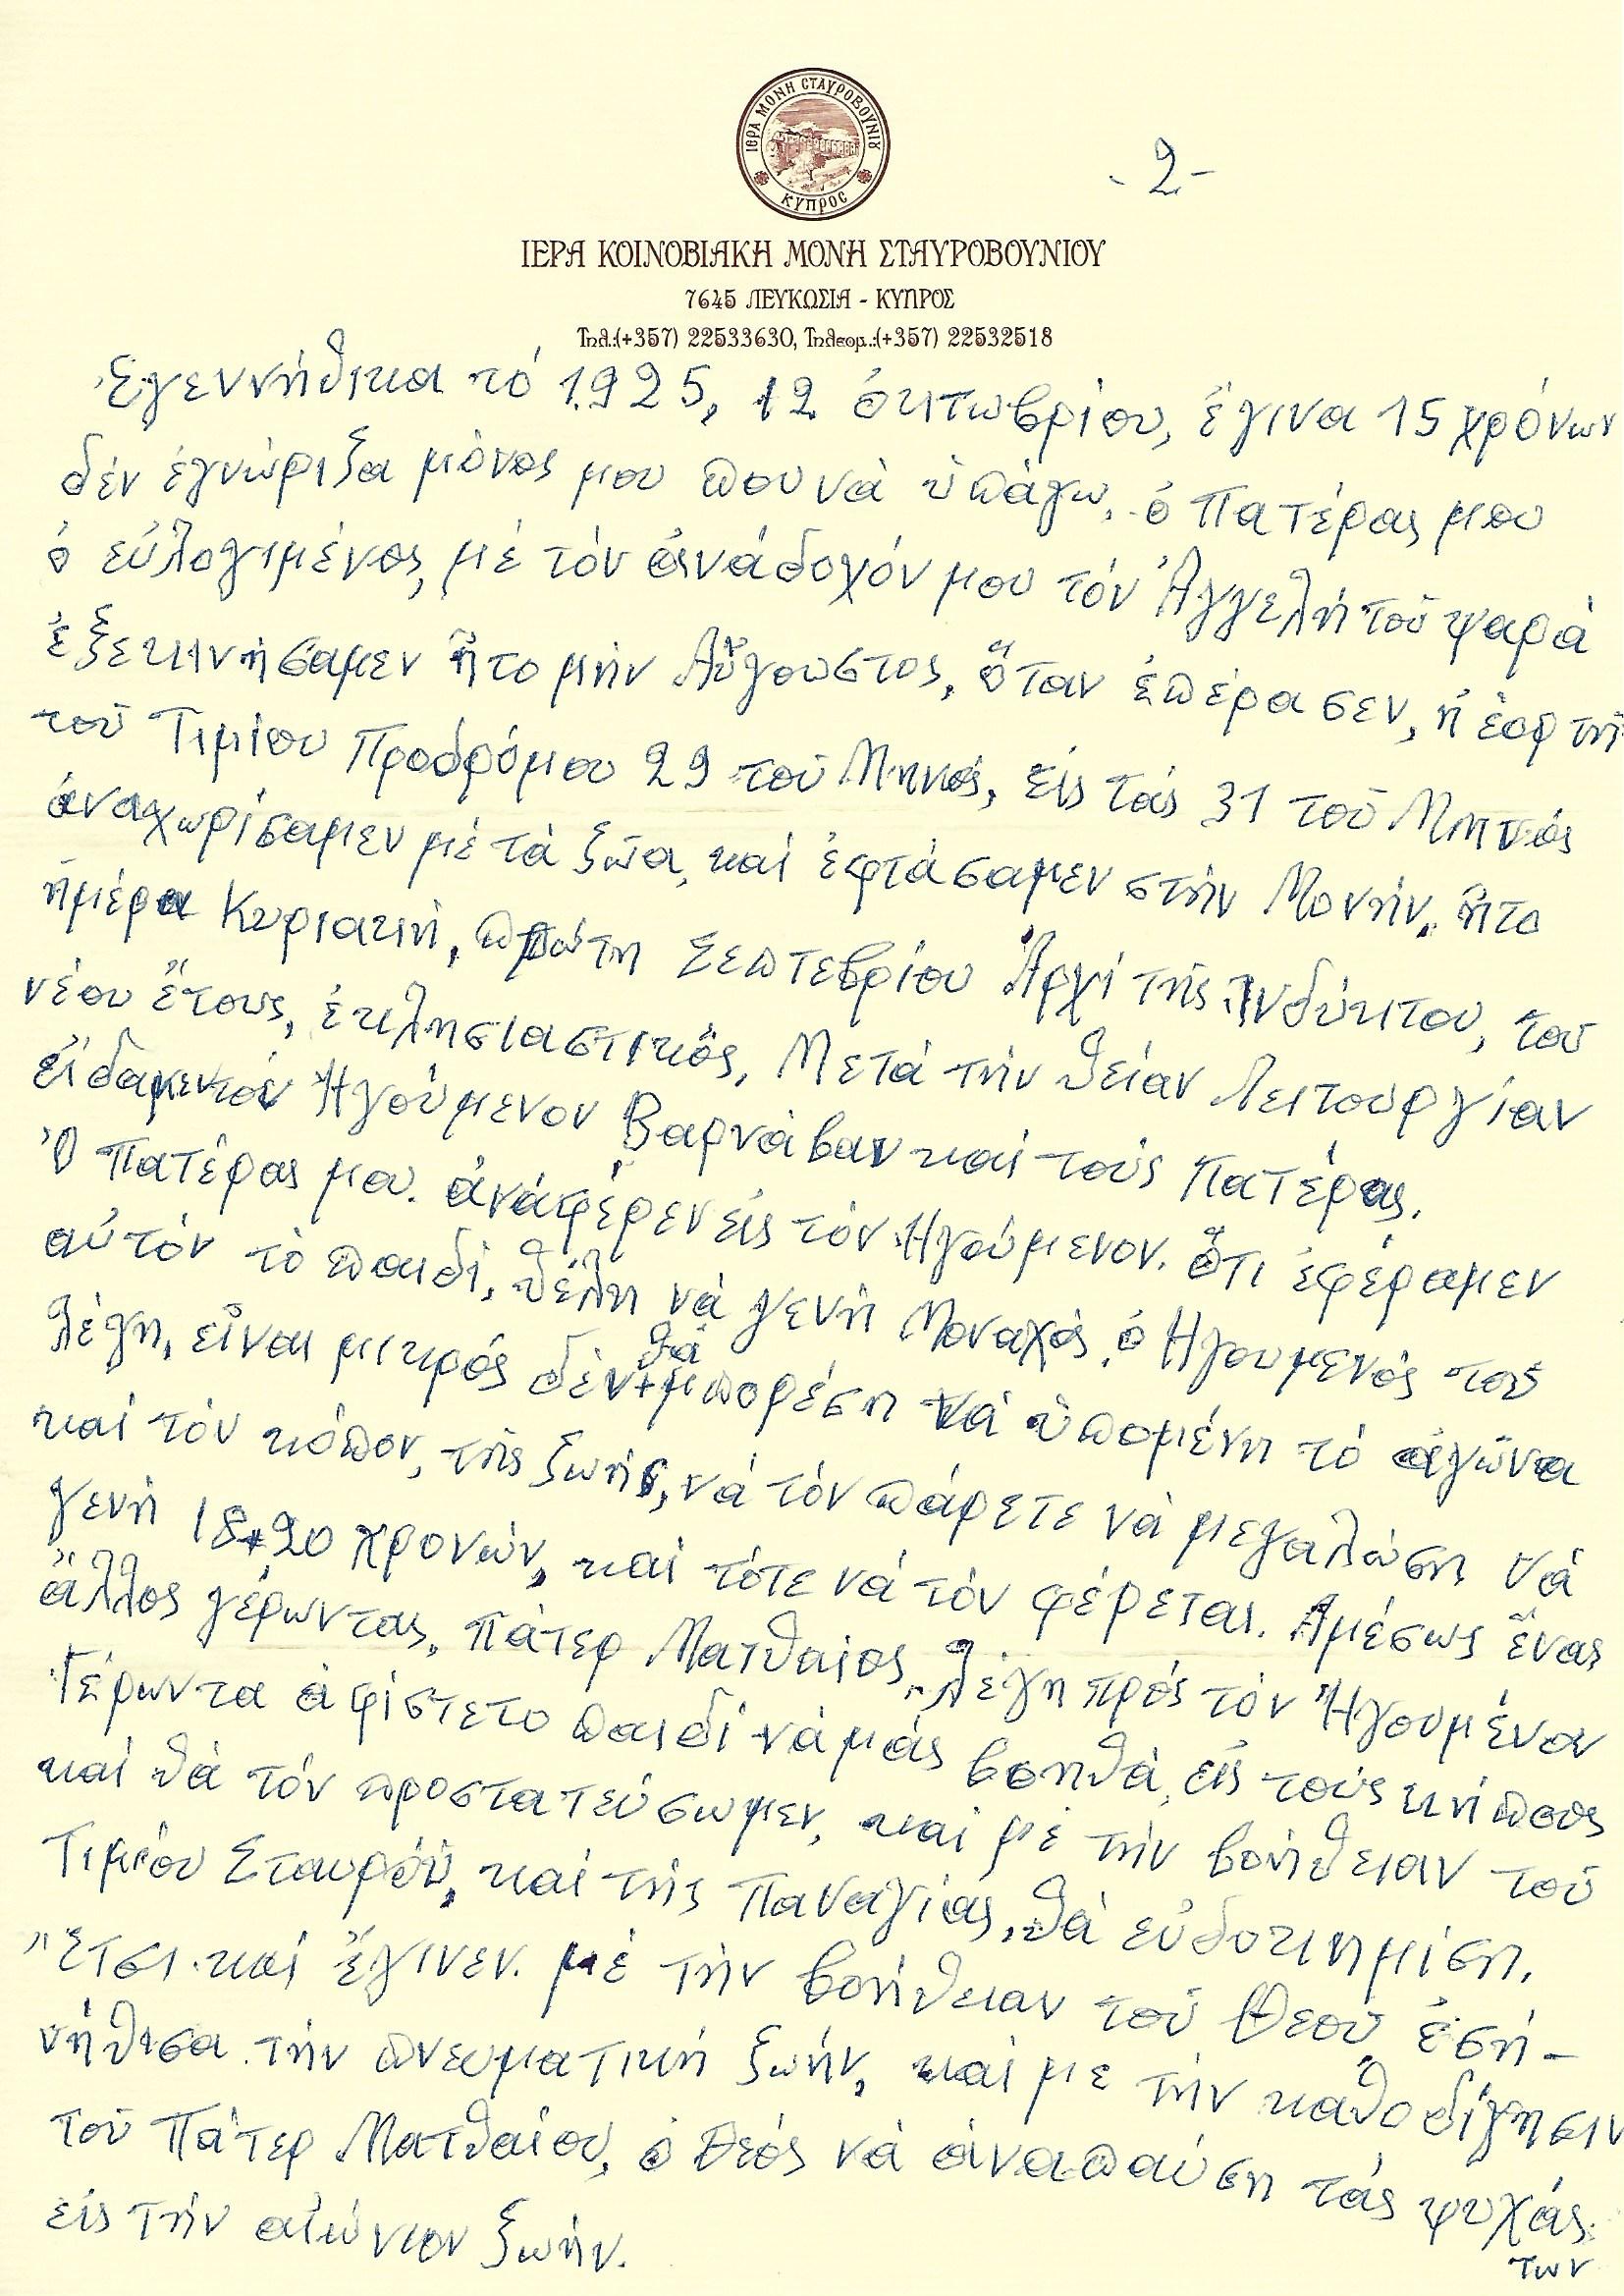 ΙΕΡΑ ΜΟΝΗ ΣΤΑΥΡΟΒΟΥΝΙΟΥ
ΚΥΠΡΟΣ
- 2 -
ΙΕΡΑ ΚΟΙΝΟΒΙΑΚΗ ΜΟΝΗ ΣΤΑΥΡΟΒΟΥΝΙΟΥ
7645 ΛΕΥΚΩΣΙΑ - ΚΥΠΡΟΣ
Τηλ.:(+357) 22533630, Τηλεομ.:(+357) 22532518
Ἐγεννήθικα τό 1925, 12 ὀκτωβρίου, ἔγινα 15 χρόνων
δέν ἐγνώριζα μόνος μου που νὰ ὑπάγω, ὁ Πατέρας μου
ὁ εὐλογιμένος, μέ τόν ἀνάδοχόν μου τόν Ἀγγελή τοῦ ψαρὰ
ἐξεκινήσαμεν ἦτο μήν Αὔγουστος, ὅταν ἐπέρασεν, ἡ ἑορτή
τοῦ Τιμίου Προδρόμου 29 τοῦ Μηνός, εἰς τάς 31 τοῦ Μηνός
ἀναχωρίσαμεν μέ τὰ ζῶα, καί ἐφτάσαμεν στήν Μονήν, ἦτο
ἡμέρα Κυριακή, πρώτη Σεπτεβρίου Ἀρχί τῆς Ἰνδύκτου, του
νέου ἔτους, ἐκλησιαστικῶς, Μετά τήν θείαν Λειτουργίαν
εἴδαμεν τόν Ἡγούμενον Βαρνάβαν καί τούς Πατέρας,
Ὁ Πατέρας μου. ἀνάφέρεν εἰς τόν Ἡγούμενον. ὅτι ἐφέραμεν
αὐτόν τὸ παιδὶ, θέλη νὰ γενῆ Μοναχός, ὁ Ἡγουμενός τοῦ
λέγη, εἶναι μικρός δὲν + θά μπορέση νά ὑπομένη τό ἀγῶνα
καί τόν κόπον, τῆς ζωῆς, νά τόν πάρετε νὰ μεγαλώση νά
γενῆ 18+20 χρονών, καί τότε νά τόν φέρεται. Ἀμέσως ἕνας
ἄλλος γέρωντας, Πάτερ Ματθαίος, λέγη πρός τόν Ἡγουμένον
Γέρωντα ἀφίστε το παιδί νά μάς βοηθά, εἰς τούς κήπους
καί θὰ τόν προστατεύσωμεν, καί μέ τήν βοήθειαν τοῦ
Τιμίου Σταυροῦ, καί τῆς Παναγίας, θὰ εὐδοκιημίση.
Ἔτσι καί ἔγινεν. μέ τήν βοήθειαν τοῦ Θεοῦ, ἐσή-
νήθισα τήν πνευματική ζωήν, καί με τήν καθοδίγησιν
τοῦ Πάτερ Ματθαίου, ὁ Θεός νὰ ἀναπαύση τάς ψυχάς
των
εἰς τήν αἰώνιον ζωήν.